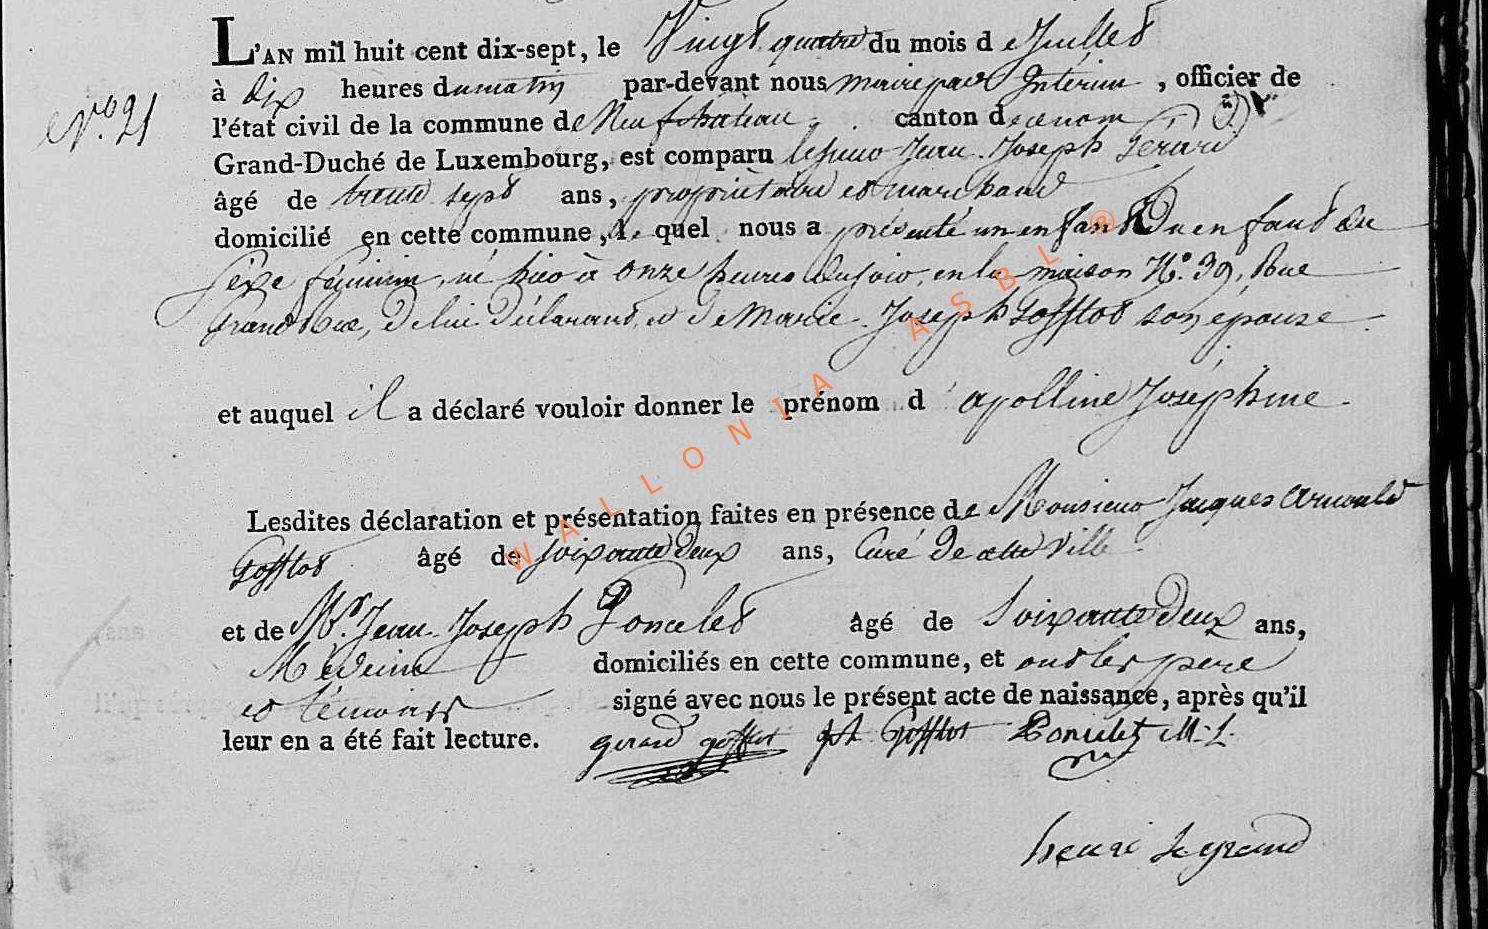 L'AN mil huit cent dix-sept, le Vingt quatre du mois de Juillet
N.º 21
à dix heures du matin par-devant nous maire par Intérim, officier de
l'état civil de la commune de Neufchâteau, canton de cenom
Grand-Duché de Luxembourg, est comparu le sieur Jean Joseph Gérard
âgé de trente sept ans, propriètaire et marchand
domicilié en cette commune, le quel nous a présenté un enfant du
Séxe féminin, né hier à Onze heures du soir, en la maison N.º 39, Rue
Grand Rue, de lui déclarant, et de Marie Joseph Gofflot son épouse.
et auquel il a déclaré vouloir donner le prénom d'apolline Joséphine.
Lesdites déclaration et présentation faites en présence de Monsieur Jacques Arnould
Gofflot âgé de soixante deux ans, Curé de cette Ville
et de Mr. Jean Joseph Poncelet âgé de Soixante deux ans,
Médecin domiciliés en cette commune, et ont les pere
et témoins signé avec nous le présent acte de naissance, après qu'il
leur en a été fait lecture. gerard gofflot Gofflot Poncelet M. L.
henri Legrand
WALLONIA ASBL ®